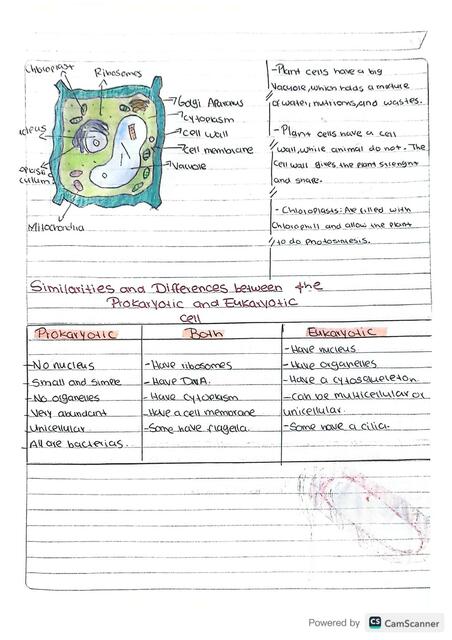 Chloroplast
Ribosomes
Golgi Aparatus
Cytoplasm
Cell wall
Cell membrane
Vacuole
ucleus
culum
Mitochondria
-Plant cells have a big
Vacuole, which holds a mixture
of water, nutrions, and wastes.
-Plant cells have a cell
wall, while animal do not. The
cell wall gives the plant strenght
and shape.
- Chloroplasts: Are filled with
Chlorophill and allow the plant
to do photosintesis.
Similarities and Differences between the
Prokaryotic and Eukaryotic
cell
Prokaryotic Both Eukaryotic
- Have nucleus.
-No nucleus -Have ribosomes -Have organelles
Small and simple -Have DNA. -Have a cytosqueleton
-No organelles -Have cytoplasm -can be multicellular or
Very abundant -Have a cell membrane unicellular.
Unicellular -Some have flagella. -Some have a cilia.
All are bacterias.
Powered by CS CamScanner